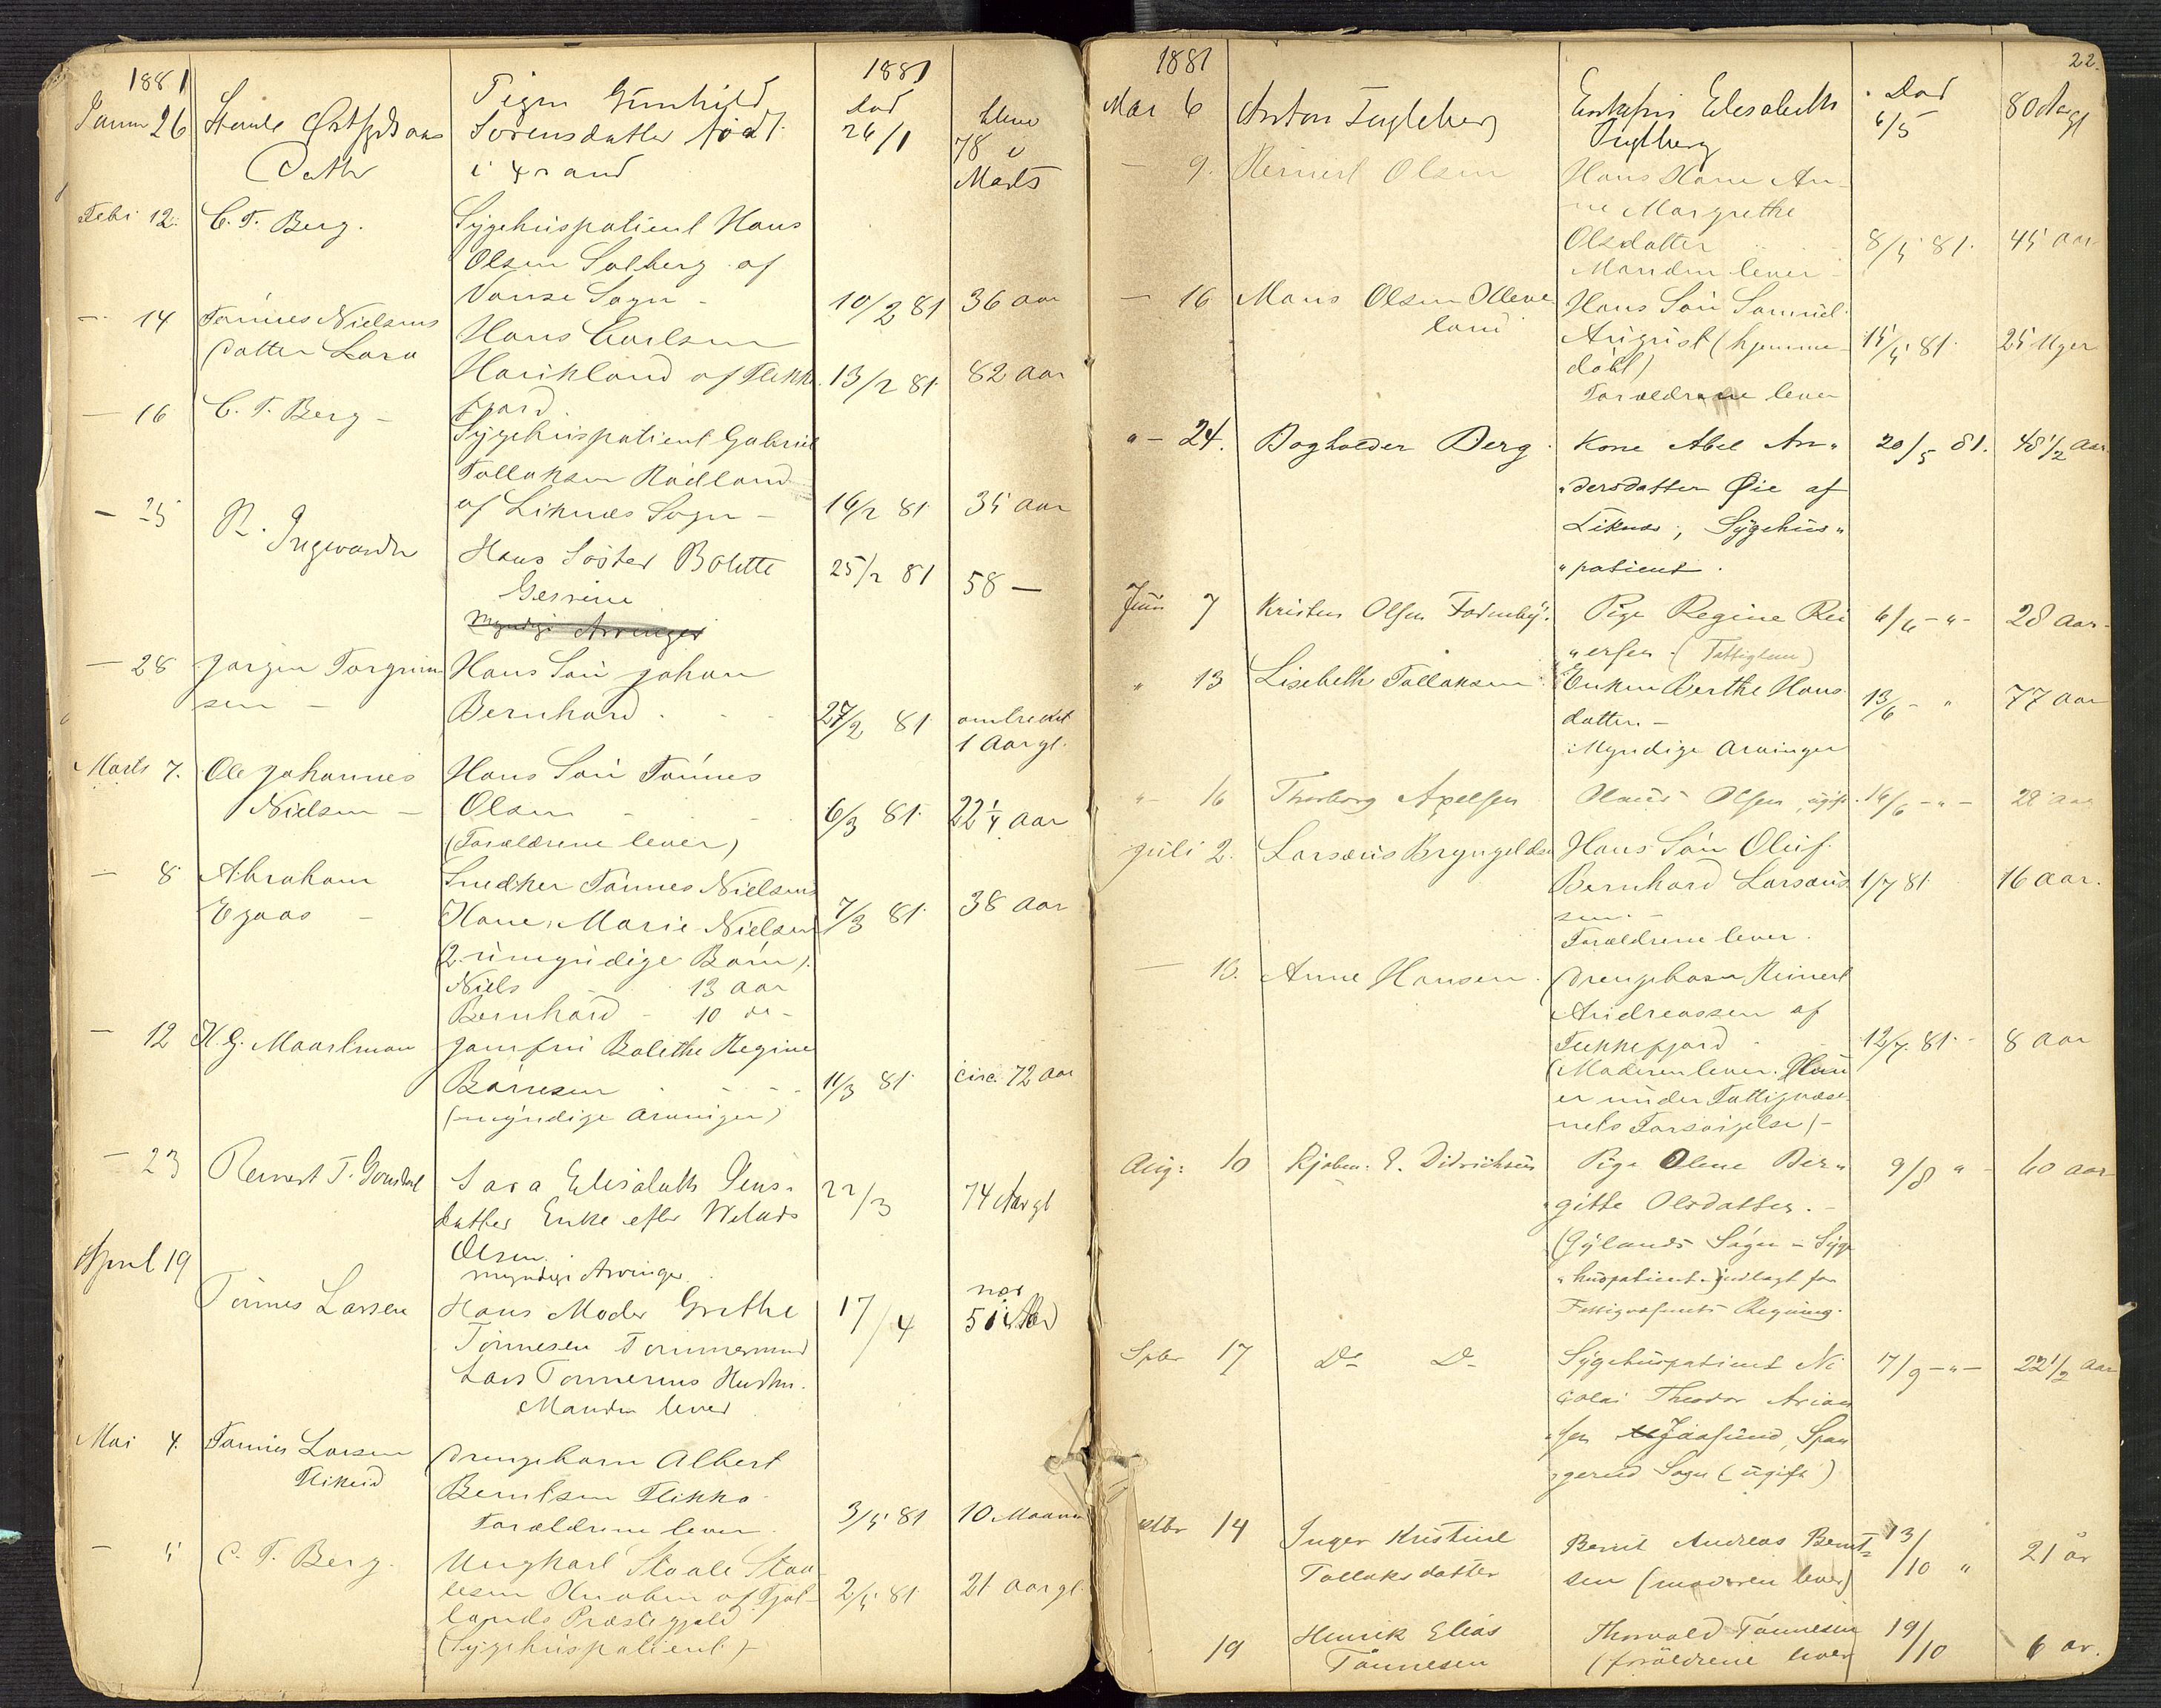 1881
1881
Januar 26
Pigen Gunhild
Sørensdatter født
i
død
26/1
78 i
Marts
Febr 12.
C. T. Berg.
Sygehuspatient Hans
Olsen Solberg af
Vanse Sogn -
10/2 81
36 aar
- 14
Tønnes Nielsens
datter Lara
Hans Carlsen
af Flekke
fjord.
13/2 81.
82 aar
- 16
C. T. Berg -
Sygehuspatient Gabriel
Tollaksen Rødland
af Liknes Sogn -
16/2 81
35 aar
- 25
Hans Søster Bolette
Gesine
Myndige Arvinger
25/2 81
58 -
- 28
Jørgen Torgrim
sen -
Hans Søn Johan
Bernhard
27/2 81
omtrent
1 Aar gl.
Marts 7.
Ole Johannes
Nielsen -
Hans Søn Tønnes
Olsen
(Forældrene lever)
6/3 81.
22 1/4 aar
- 8
Abraham
Egaas -
Snedker Tønnes Nielsens
Kone, Marie Nielsen
(2 umyndige Børn).
Niels - 13 aar
Bernhard - 10 do -
7/3 81.
38 aar
- 12
K. G. Maarlman
Jomfru Bolethe Regine
Børresen
(myndige arvinger)
11/3 81.
circ. 72 aar
- 23
Reinert T.
Sara Elisabeth Jens-
datter Enke efter
Olsen.
myndige Arvinger
22/3
74 Aar gl
April 19
Tønnes Larsen
Hans Moder Grethe
Tønnesen Tømmermand
Lars Tønnesens Hustru.
Manden lever
17/4
nær
51 Aar
Mai 4.
Tønnes Larsen
Flikeid
Drengebarn Albert
Berntsen Flikke
Forældrene lever
3/5 81
10 Maaned
- 5
C. T. Berg.
Ungkarl Staale Staa-
lesen af Fjot-
lands Præstegjæld
(Sygehuspatient) -
2/5 81
21 aar gl.
1881
22.
Mai 6
Anton Fugleberg
Enkefru Elisabeth
Fugleberg
Død
6/5
80 Aar gl
- 9.
Reinert Olsen
Hans Kone An-
ne Margrethe
Olsdatter
Manden lever -
8/5 81.
45 aar
- 16
Mons Olsen Olleve
land
Hans Søn Samuel
August (hjemme-
døbt)
Forældrene lever
15/5 81.
25 Uger
" - 24.
Bogholder Berg.
Kone Abel An-
"dersdatter Øie af
Liknes, Sygehus"
"patient.
20/5 81.
48 1/2 aar
Juni 7
Kristen Olsen
Pige Regine Rei
"ersen. (Fattiglem)
6/6 - " -
28 aar -
" 13
Lisebeth Tollaksen
Enken Berthe Hans
datter -
Myndige arvinger
13/6 - "
77 aar
" - 16
Thorborg Axelsen
Olaus Olsen, ugift
16/6 - " -
28 aar
Juli 2.
Larsæus Bryngelsen
Hans Søn Oluf
Bernhard Larsæus
sen. -
Forældrene lever.
1/7 81.
16 aar.
- 13.
Anne Hansen.
Drengebarn Reinert
Andreassen af
Flekkefjord
(Moderen lever. Hun
er under Fattigvæse-
nets Forsørgelse) -
12/7. 81.
8 aar
Aug: 10
Kjøbm. E. Didrichsen
Pige Olene Bir"
"gitte Olsdatter. -
(Gylands Sogn - Syge
"huspatient indlagt for
Fattigvæsenets Regning.
9/8 " -
60 aar
Sptbr 17
Do Do
Sygehuspatient Ni
colai Theodor Arian
"sen Jaasund, Span
"gereid Sogn (ugift)
17/9 - " -
22 1/2 aar
14
Inger Kristine
Tollaksdatter
Bernt Andreas Bernt-
sen (moderen lever)
13/10 "
21 år
19
Henrik Elias
Tønnesen
Thorvald Tønnesen
(forældrene lever
19/10
6 år.